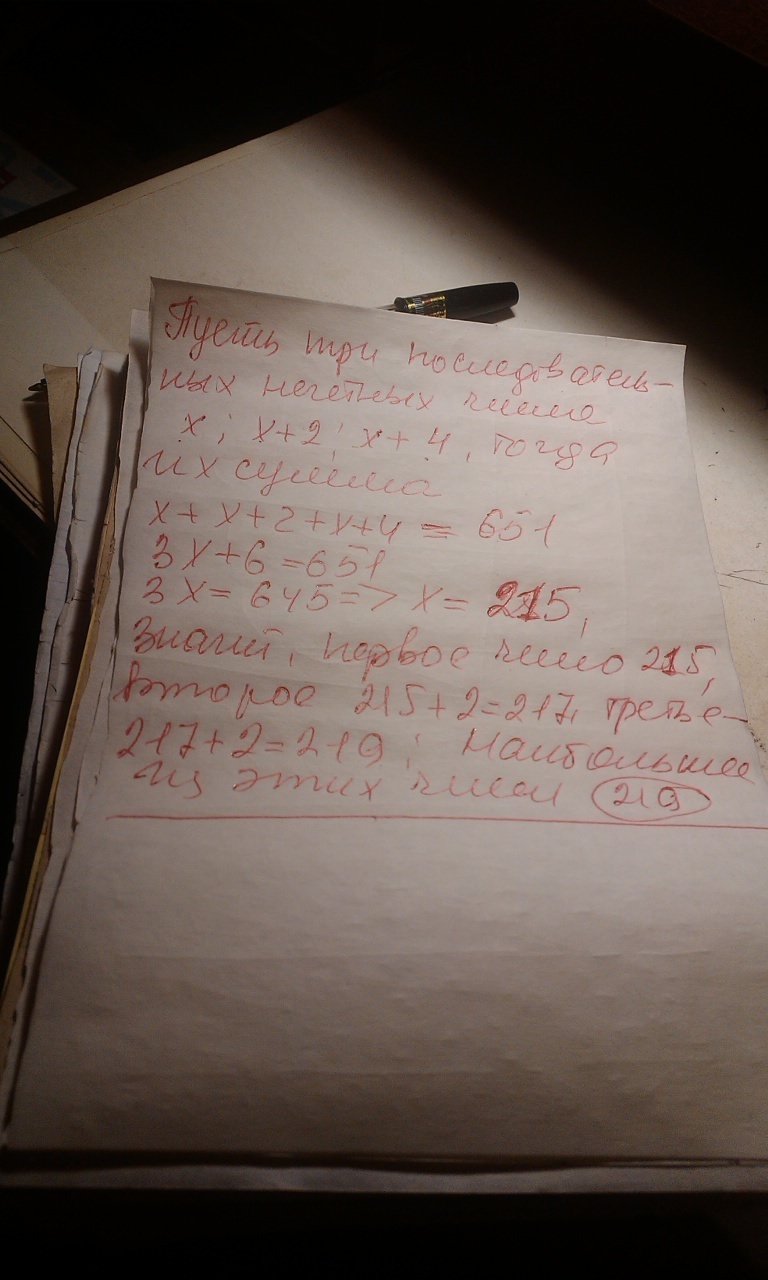 Пусть три последователь-
ных нечетных числа
x; x+2; x+4, тогда
их сумма
x+x+2+x+4 = 651
3x+6=651
3x=645=> x= 215,
Значит, первое число 215,
второе 215+2=217, третье-
217+2=219; Наибольшее
из этих чисел 219